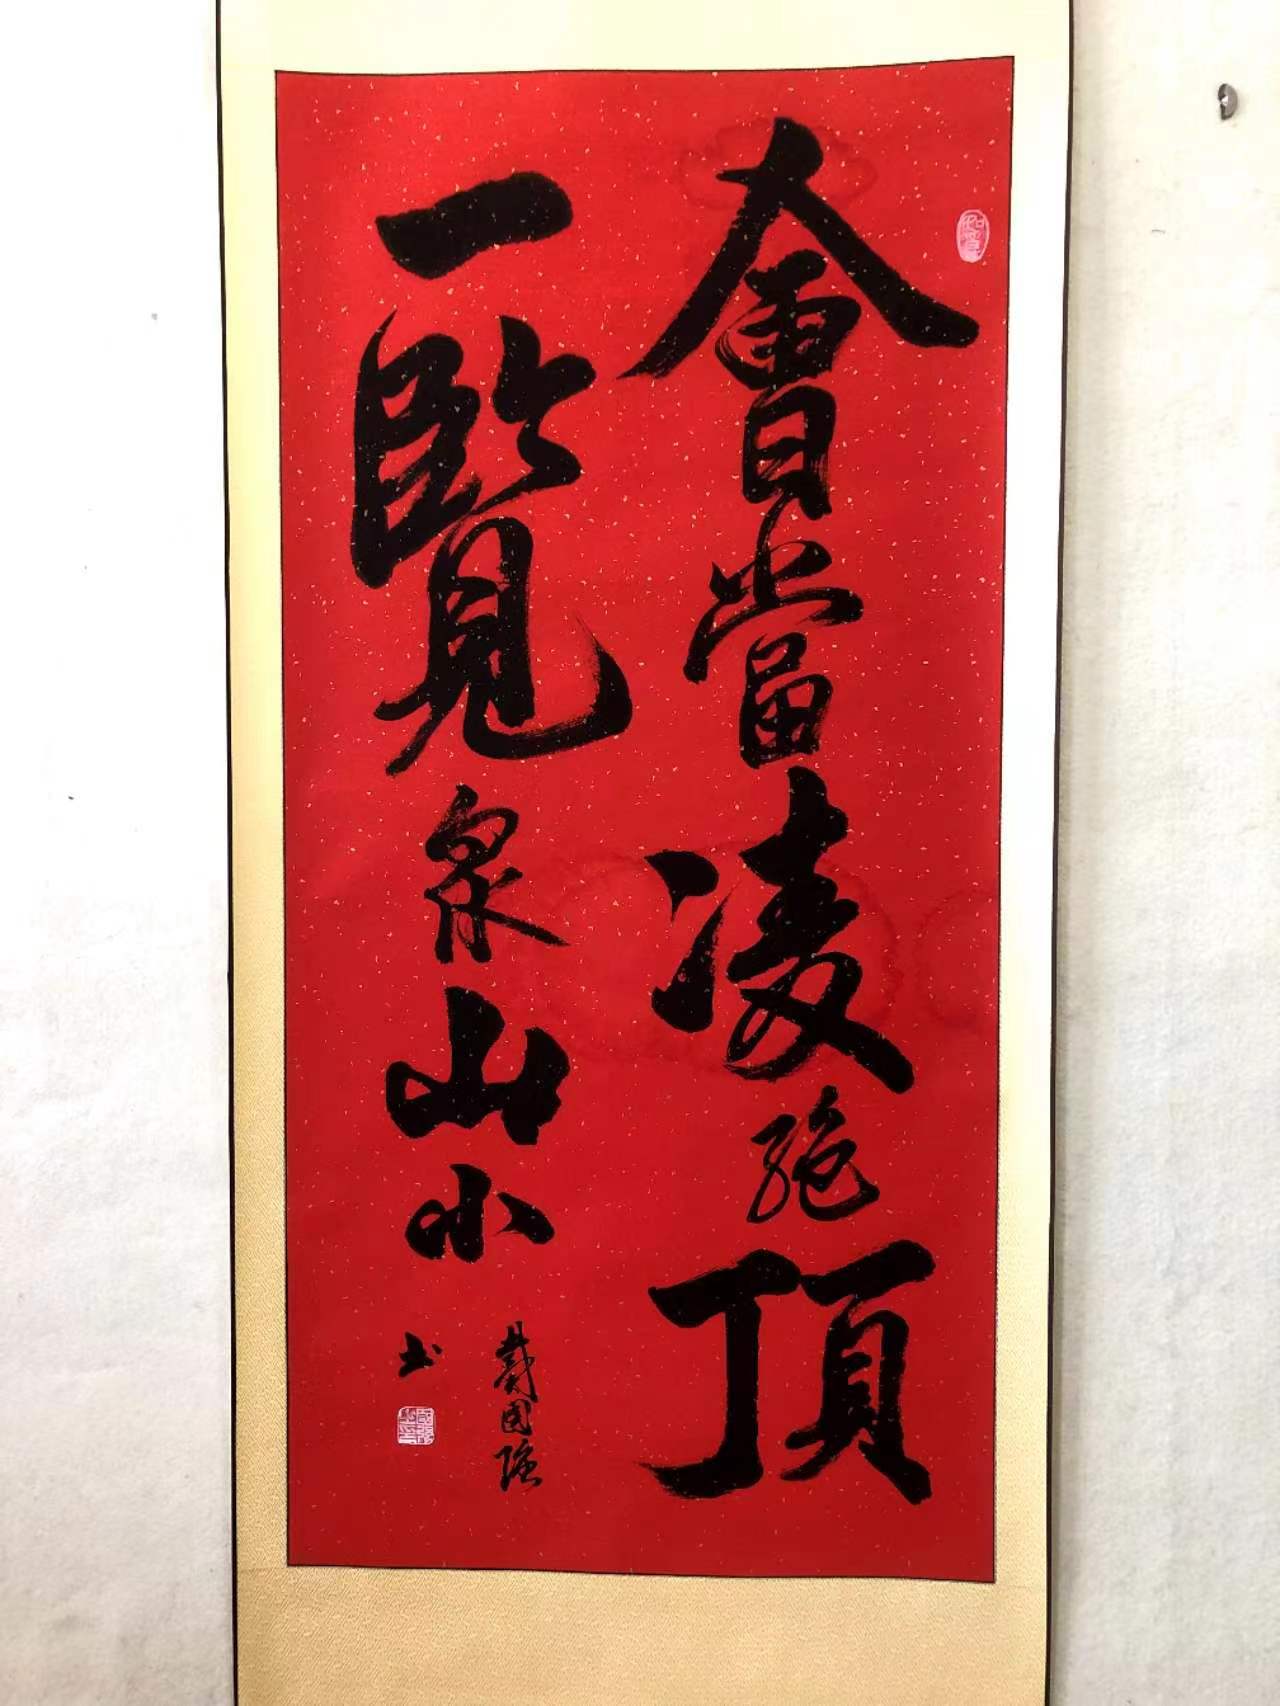 會當凌絕頂
一覽眾山小
戴國強
書